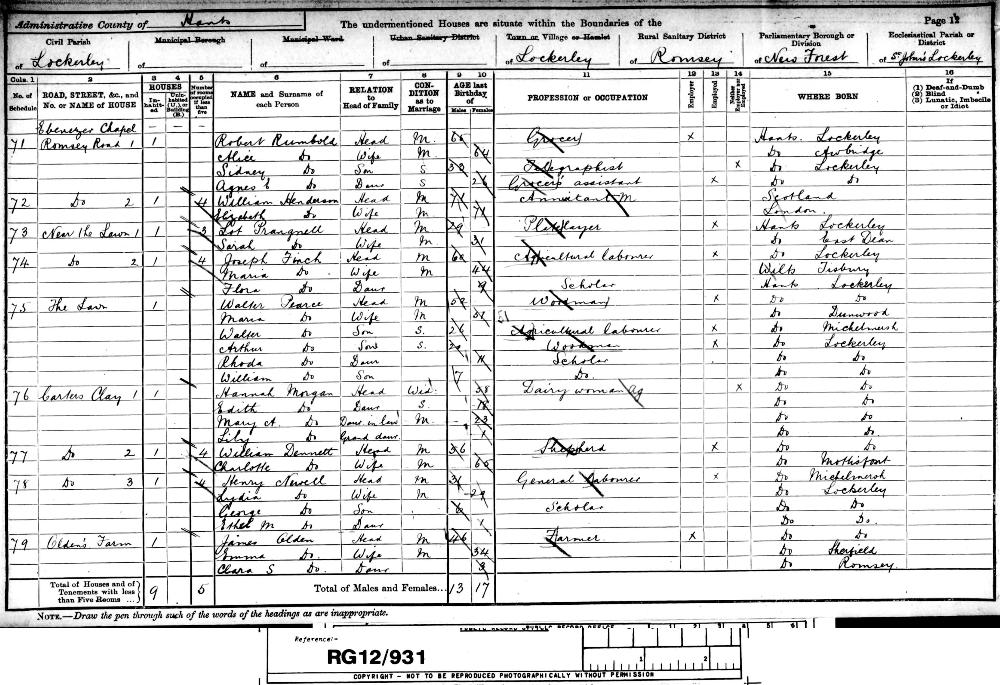 Administrative County of Hants The undermentioned Houses are situate within the Boundaries of the Page 12
Civil Parish Municipal Borough Municipal Ward Urban Sanitary District Town or Village or Hamlet Rural Sanitary District Parliamentary Borough or Division Ecclesiastical Parish or District
of Lockerley of of of of Lockerley of Romsey of New Forest of St John's Lockerley
Cols. 1 2 3 4 5 6 7 8 9 10 11 12 13 14 15 16
No. of Schedule ROAD, STREET, &c., and No. or NAME of HOUSE HOUSES Inhabited Uninhabited (U.), or Building (B.) Number of rooms occupied if less than five NAME and Surname of each Person RELATION to Head of Family CONDITION as to Marriage AGE last Birthday of Males Females PROFESSION or OCCUPATION Employer Employed Neither Employer nor Employed WHERE BORN If (1) Deaf-and-Dumb (2) Blind (3) Lunatic, Imbecile or Idiot
Ebenezer Chapel — — —
71 Romsey Road 1 1 Robert Rumbold Head M. 60 Grocer x Hants Lockerley
Alice Do Wife M. 64 Do Awbridge
Sidney Do Son S 32 Telegraphist x Do Lockerley
Agnes E Do Daur S 26 Grocer's assistant x Do Do
72 Do 2 1 4 William Henderson Head M 71 Annuitant M Scotland
Elizabeth Do Wife M 71 London
73 Near the Lawn 1 1 3 Lot Prangnell Head M 29 Platelayer x Hants Lockerley
Sarah Do Wife M 31 Do East Dean
74 Do 2 1 4 Joseph Finch Head M 60 Agricultural labourer x Do Lockerley
Maria Do Wife M 44 Wilts Tisbury
Flora Do Daur 9 Scholar Hants Lockerley
75 The Lawn 1 Walter Pearce Head M 52 Woodman x Do Do
Maria Do Wife M 51 51 Do Dunwood
Walter Do Son S. 26 Agricultural labourer x Do Michelmersh
Arthur Do Son S. 20 Woodman x Do Lockerley
Rhoda Do Daur 11 Scholar Do Do
William Do Son 7 Do Do Do
76 Carters Clay 1 1 Hannah Morgan Head Wid. 58 Dairy woman Ag x Do Do
Edith Do Daur S. 18 Do Do
Mary A. Do Daur in law M 23 Do Do
Lily Do Grand daur Do Do
77 Do 2 1 4 William Dennett Head M 56 Shepherd x Do Do
Charlotte Do Wife M 60 Do Mottisfont
78 Do 3 1 4 Henry Newell Head M 31 General labourer x Do Michelmersh
Lydia Do Wife M 29 Do Lockerley
George Do Son 6 Scholar Do Do
Ethel M Do Daur 1 Do Do
79 Olden's Farm 1 James Olden Head M 46 Farmer x Do Do
Emma Do Wife M 34 Do Sherfield
Clara S Do Daur 3 Do Romsey
Total of Houses and of Tenements with less than Five Rooms ...} 9 5 Total of Males and Females... 13 17
NOTE.—Draw the pen through such of the words of the headings as are inappropriate.
Reference:-
RG12/931
1 2
COPYRIGHT - NOT TO BE REPRODUCED PHOTOGRAPHICALLY WITHOUT PERMISSION